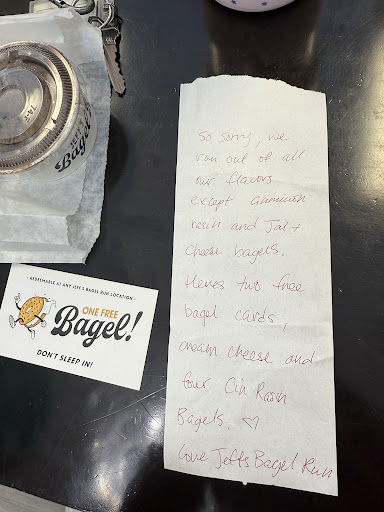 So sorry, we
ran out of all
our flavors
except cinnamon
rasin and Jal +
cheese bagels.
Heres two free
bagel cards,
cream cheese and
four Cin Rasin
Bagels. ♡
Love Jeffs Bagel Run
- REDEEMABLE AT ANY JEFF'S BAGEL RUN LOCATION -
ONE FREE
Bagel!
DON'T SLEEP IN!
Bagel